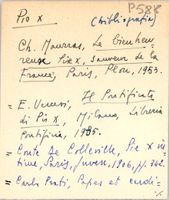 Pio X
(bibliografia)
Ch. Maurras, Le bienheu
reux Pie X, sauveur de la
France, Paris, Plon, 1953.
= E. Vercesi, Il Pontificato
di Pio X, Milano, Libreria
Pontificia, 1935.
= Conte de Colleville, Pie X in
time, Paris, Juven, 1906, pp. 362.
= Carlo Prati, Papes et cardi=